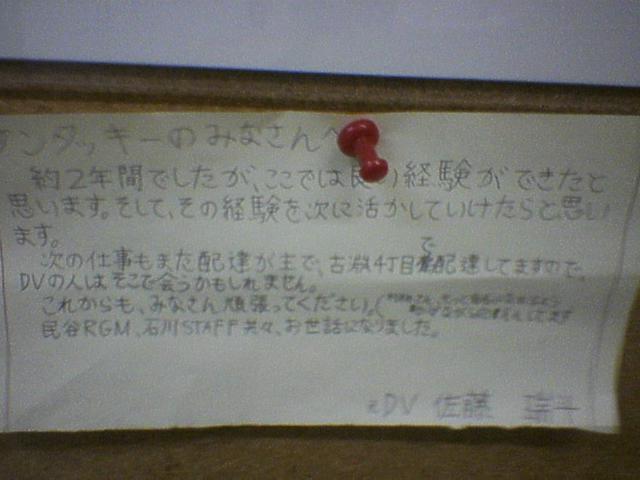 ケンタッキーのみなさんへ
約2年間でしたが、ここでは良い経験ができたと
思います。そして、その経験を次に活かしていけたらと思い
ます。
次の仕事もまた配達が主で、古淵4丁目で配達してますので、
DVの人はそこで会うかもしれません。
これからも、みなさん頑張ってください。(
民谷RGM、石川STAFF共々、お世話になりました。
DV 佐藤